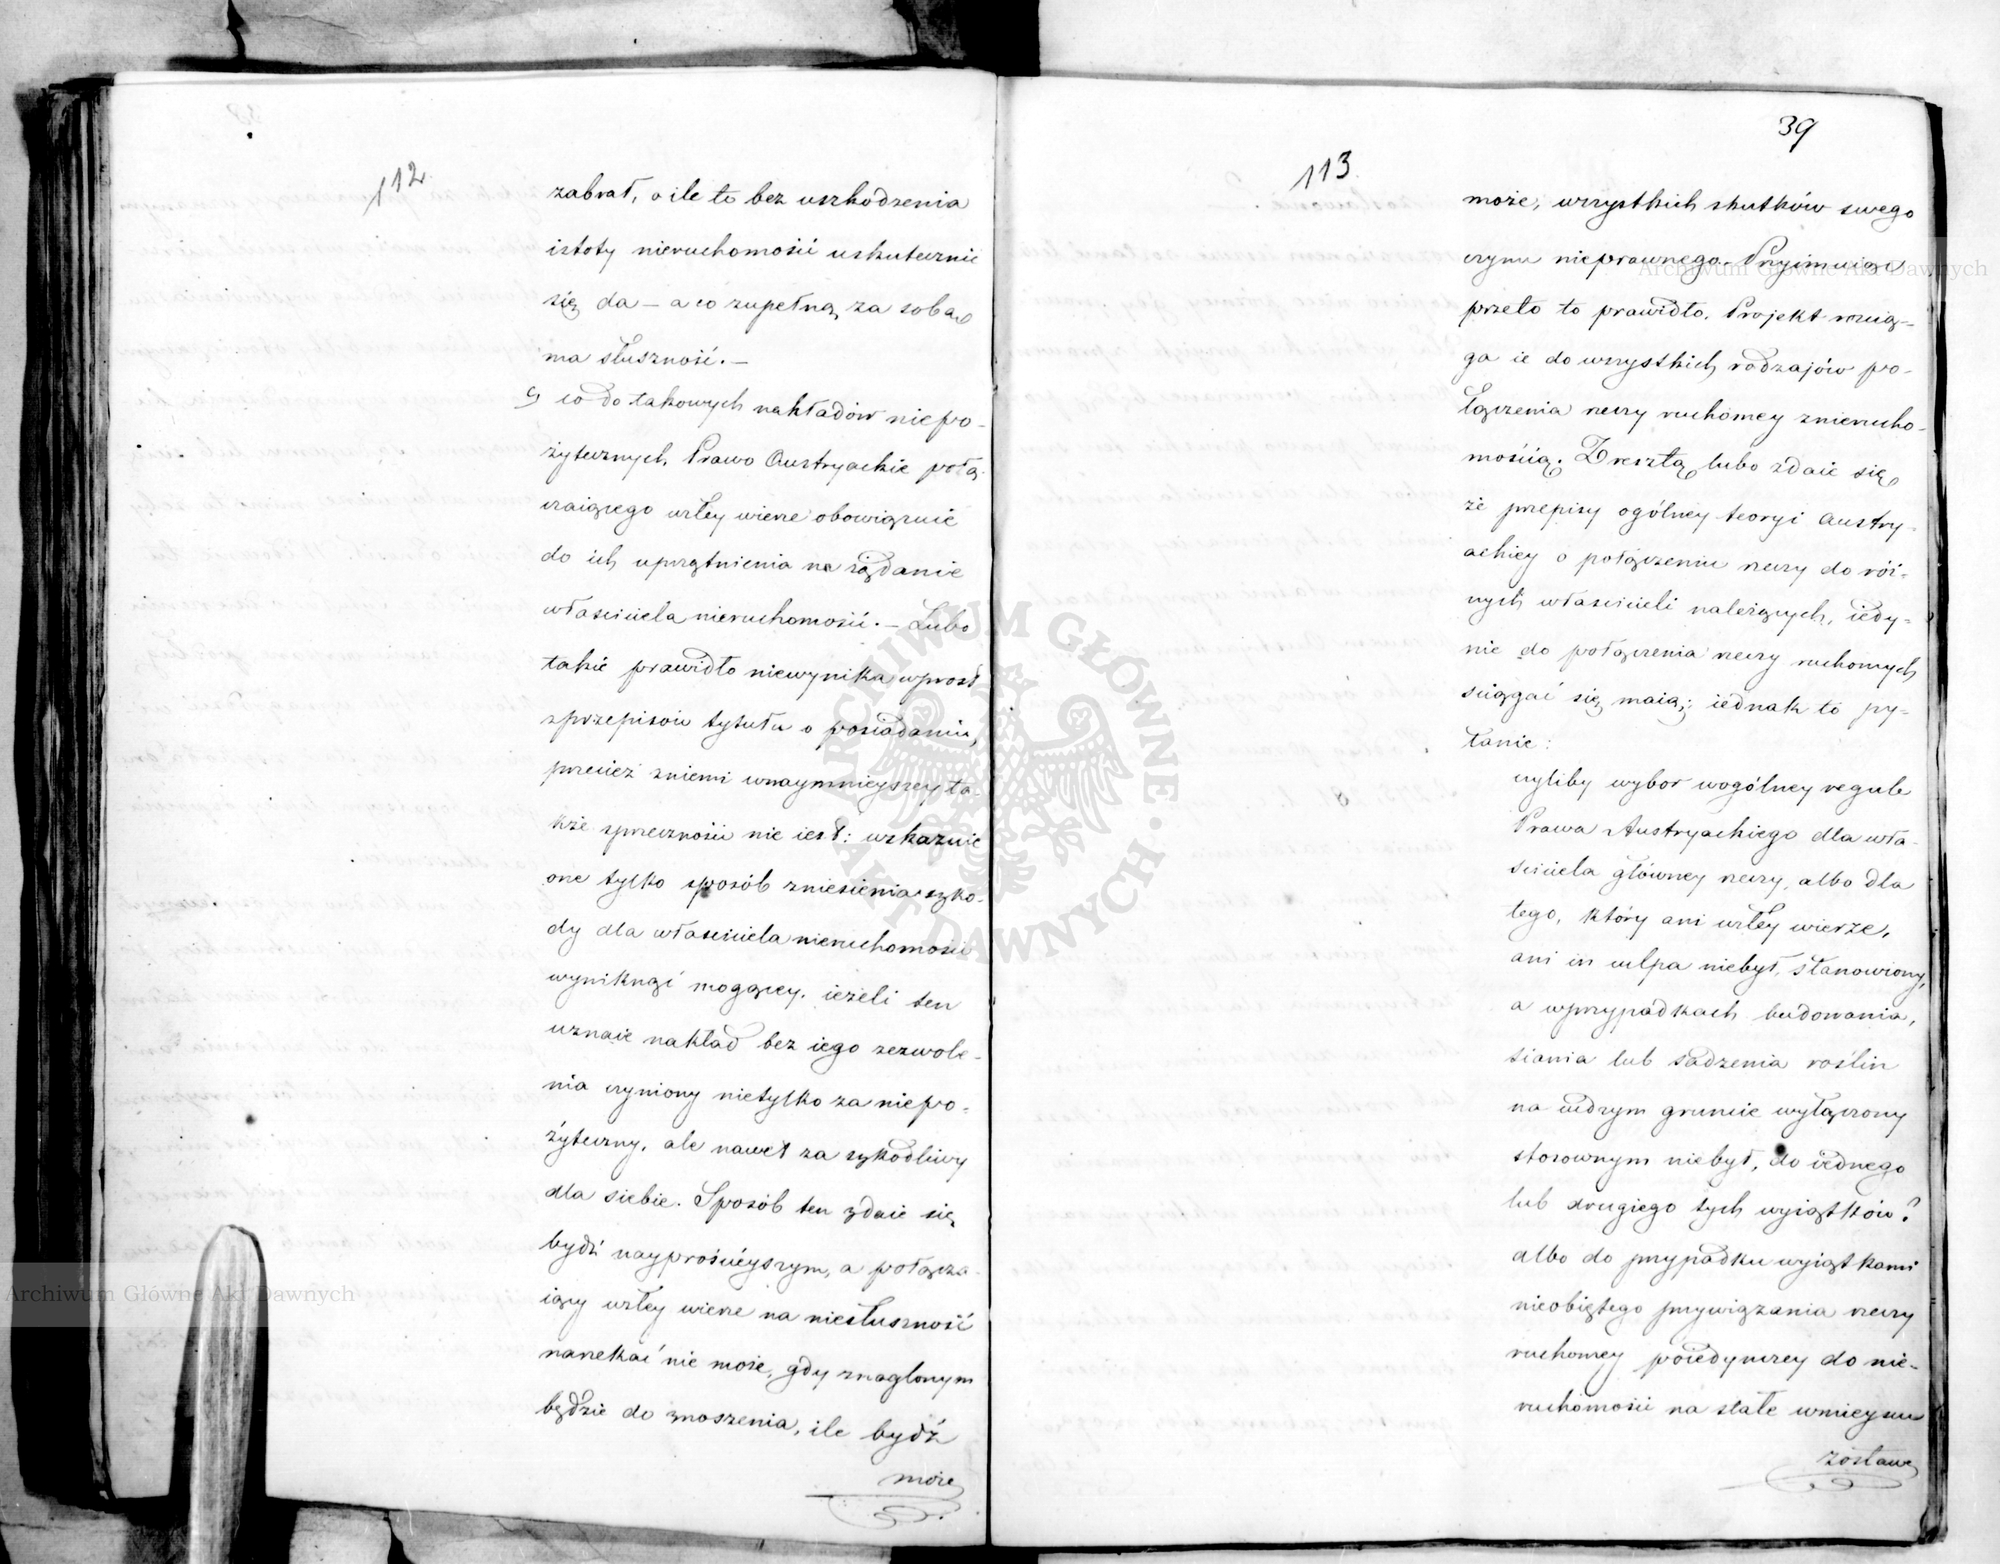 112
zabrał, o ile to bez uszkodzenia
istoty nieruchomości uskutecznić
się da – a co zupełną za sobą
ma słuszność. –
c, co do takowych nakładów niepo-
żytecznych, Prawo Austryackie połą-
czaiącego wzłey wierze obowięzuie
do ich uprzątnienia na żądanie
właściciela nieruchomości. – Lubo
takie prawidło niewynika wprost
zprzepisów tytułu o posiadaniu,
przecież zniemi wnaymnieyszey ta-
kże sprzeczności nie iest: wskazuie
one tylko sposób zniesienia szko-
dy dla właściciela nieruchomości
wyniknąć mogącey, ieżeli ten
uznaie nakład bez iego zezwole-
nia czyniony nietylko za niepo-
żyteczny, ale nawet za szkodliwy
dla siebie. Sposób ten zdaie się
bydź nayprościeyszym, a połącza-
iący wzłey wierze na niesłuszność
narzekać nie może, gdy znaglonym
będzie do znoszenia, ile bydź
może
39
113
może, wszystkich skutków swego
czynu nieprawnego. – Przyimuiąc
przeto to prawidło, Projekt rozcią-
ga ie do wszystkich rodzajów po-
łączenia rzeczy ruchomey znierucho-
mością. Zresztą lubo zdaie się
że przepisy ogólney teoryi Austry-
ackiey o połączeniu rzeczy do róż-
nych właścicieli należących, iedy-
nie do połączenia rzeczy ruchomych
sciągać się maią; iednak to py-
tanie:
czyliby wybor wogólney regule
Prawa Austryackiego dla wła-
ściciela główney rzeczy, albo dla
tego, który ani wzłey wierze,
ani in culpa niebył, stanowiony,
a wprzypadkach budowania,
siania lub sadzenia roślin
na cudzym gruncie wyłączony
stosownym niebył, do iednego
lub drugiego tych wyiątków?
albo do przypadku wyiątkami
nieobiętego przywiązania rzeczy
ruchomey poiedynczey do nie-
ruchomości na stałe wmieyscu
zostawe
Archiwum Główne Akt Dawnych
Archiwum Główne Akt Dawnych
ARCHIWUM GŁÓWNE · AKT DAWNYCH ·